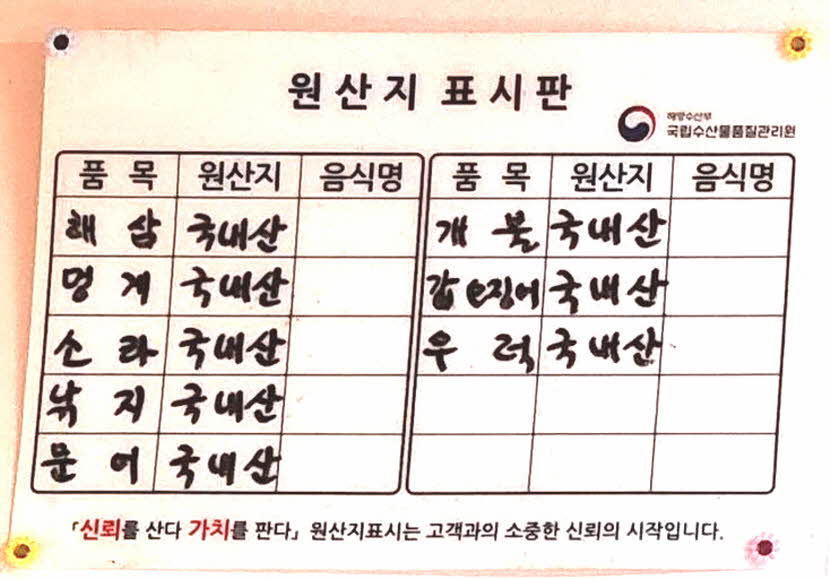 원산지 표시판
해양수산부
국립수산물품질관리원
품 목 원산지 음식명 품 목 원산지 음식명
해 삼 국내산 개 불 국내산
멍 게 국내산 갑오징어 국내산
소 라 국내산 우 럭 국내산
낚 지 국내산
문 어 국내산
「신뢰를 산다 가치를 판다」 원산지표시는 고객과의 소중한 신뢰의 시작입니다.